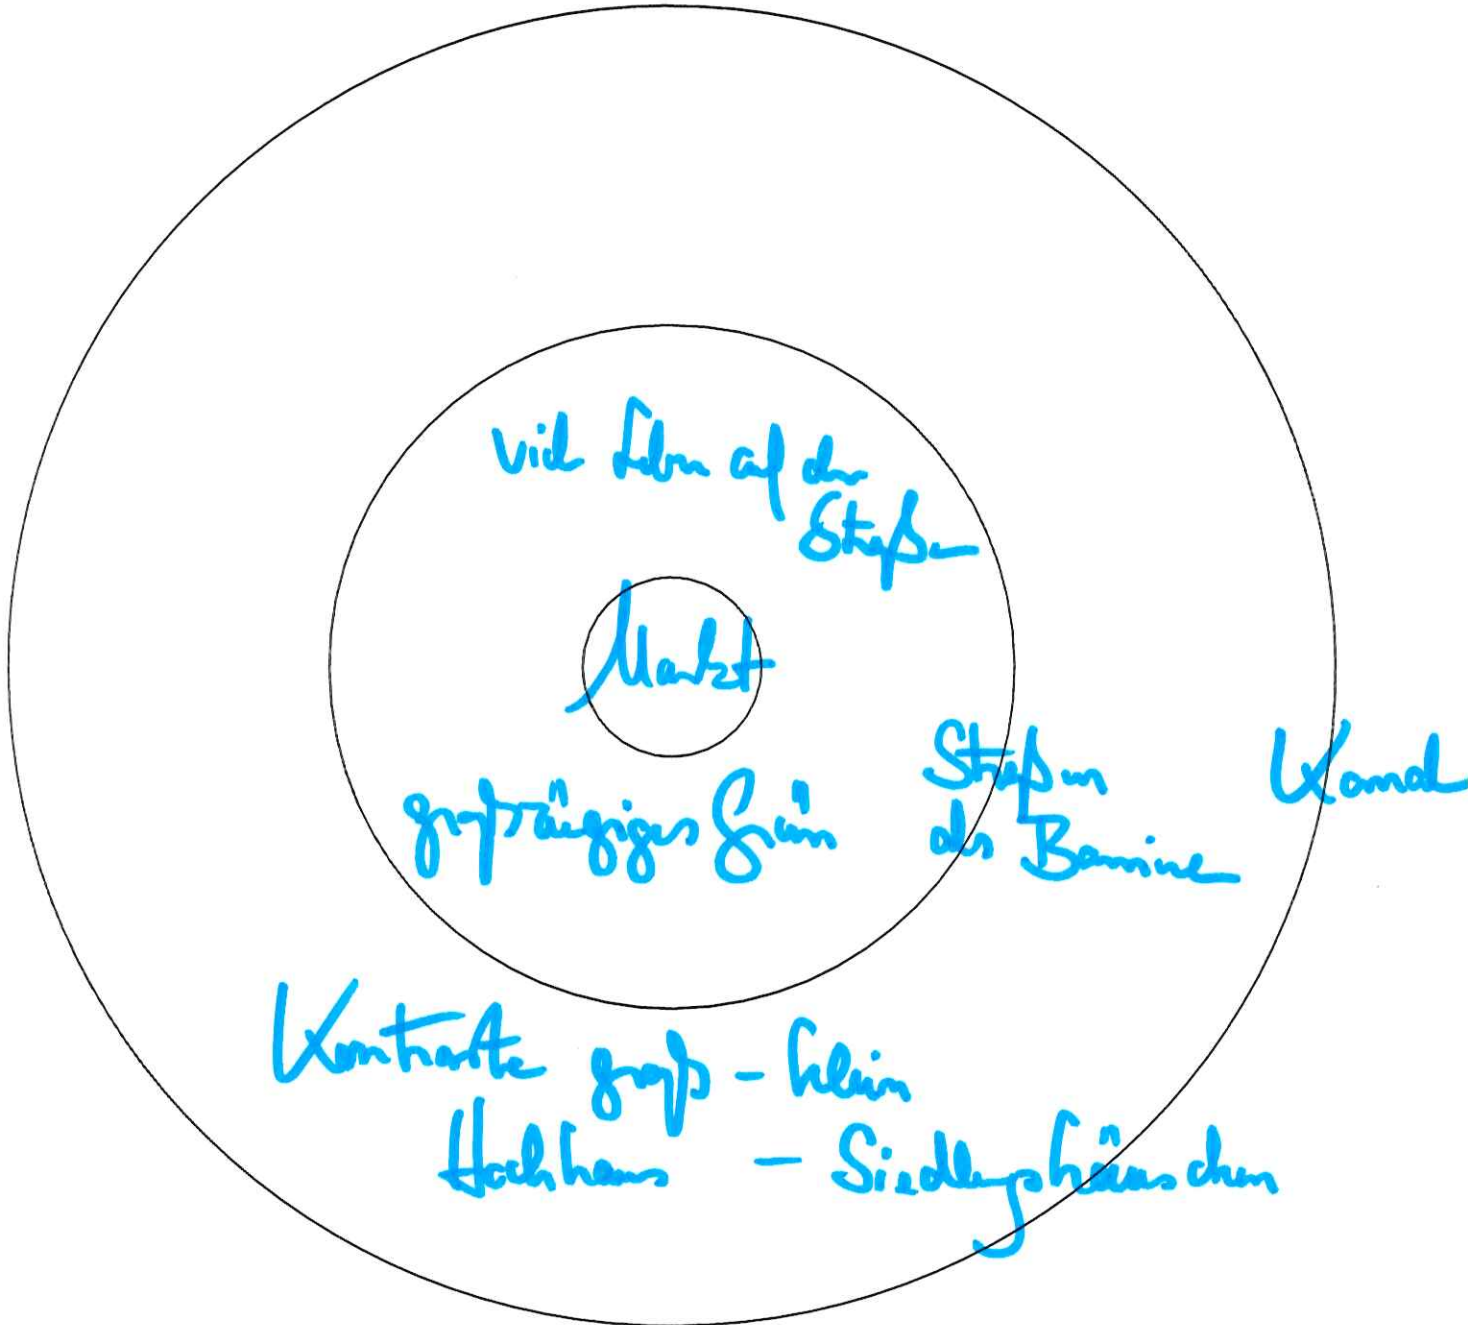 viel Leben auf den
Straßen
Markt
großzügiges Grün
Straßen
der
Kanal
Kontraste groß - klein
Hochhaus - Siedlungshäuschen